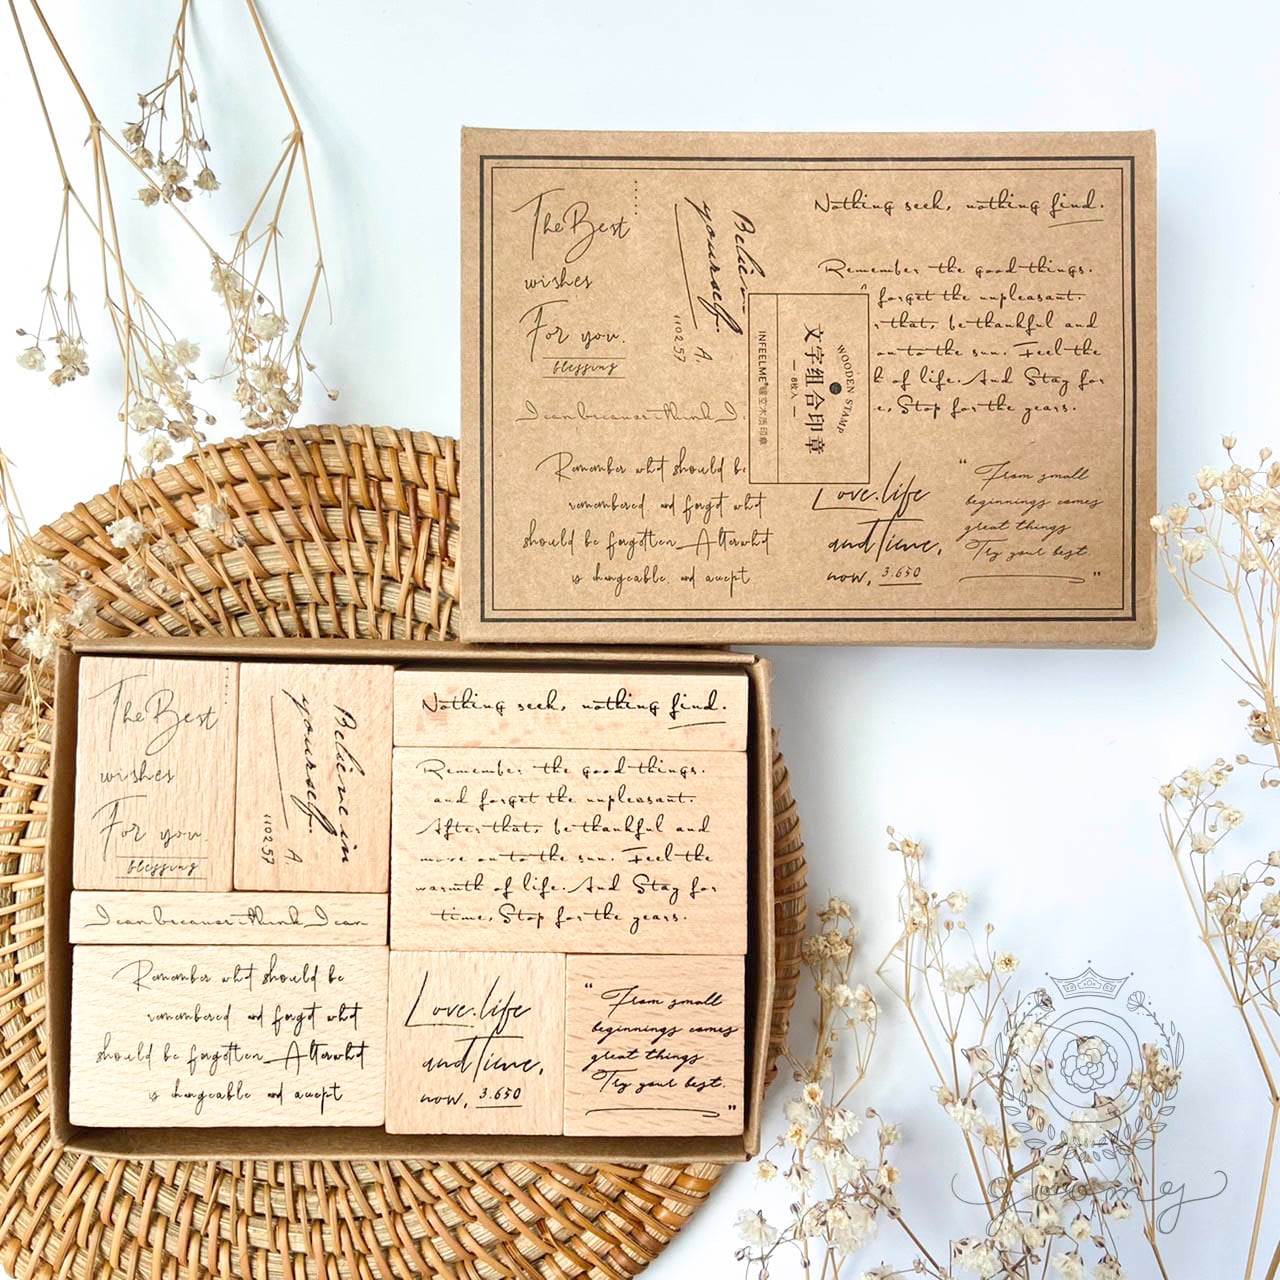 The Best
wishes
For you.
blessing
Believe in
yourself.
1102.57 A.
Nothing seek, nothing find.
Remember the good things.
forget the unpleasant.
that, be thankful and
on to the sun. Feel the
of life. And Stay for
Stop for the years.
WOODEN STAMP
文字组合印章
— 8枚入 —
INFEELME 暖空木质印章
I can because I think I
Remember what should be
remembered and forgot what
should be forgotten Alterwhat
is changeable and accept
Love.life
and Time,
now, 3.650
“ From small
beginnings comes
great things
Try your best. ”
The Best
wishes
For you.
blessing
Believe in
yourself.
1102.57 A.
Nothing seek, nothing find.
Remember the good things.
and forget the unpleasant.
After that, be thankful and
move on to the sun. Feel the
warmth of life. And Stay for
time, Stop for the years.
I can because I think I can
Remember what should be
remembered and forgot what
should be forgotten Alterwhat
is changeable and accept
Love.life
and Time,
now, 3.650
“ From small
beginnings comes
great things
Try your best. ”